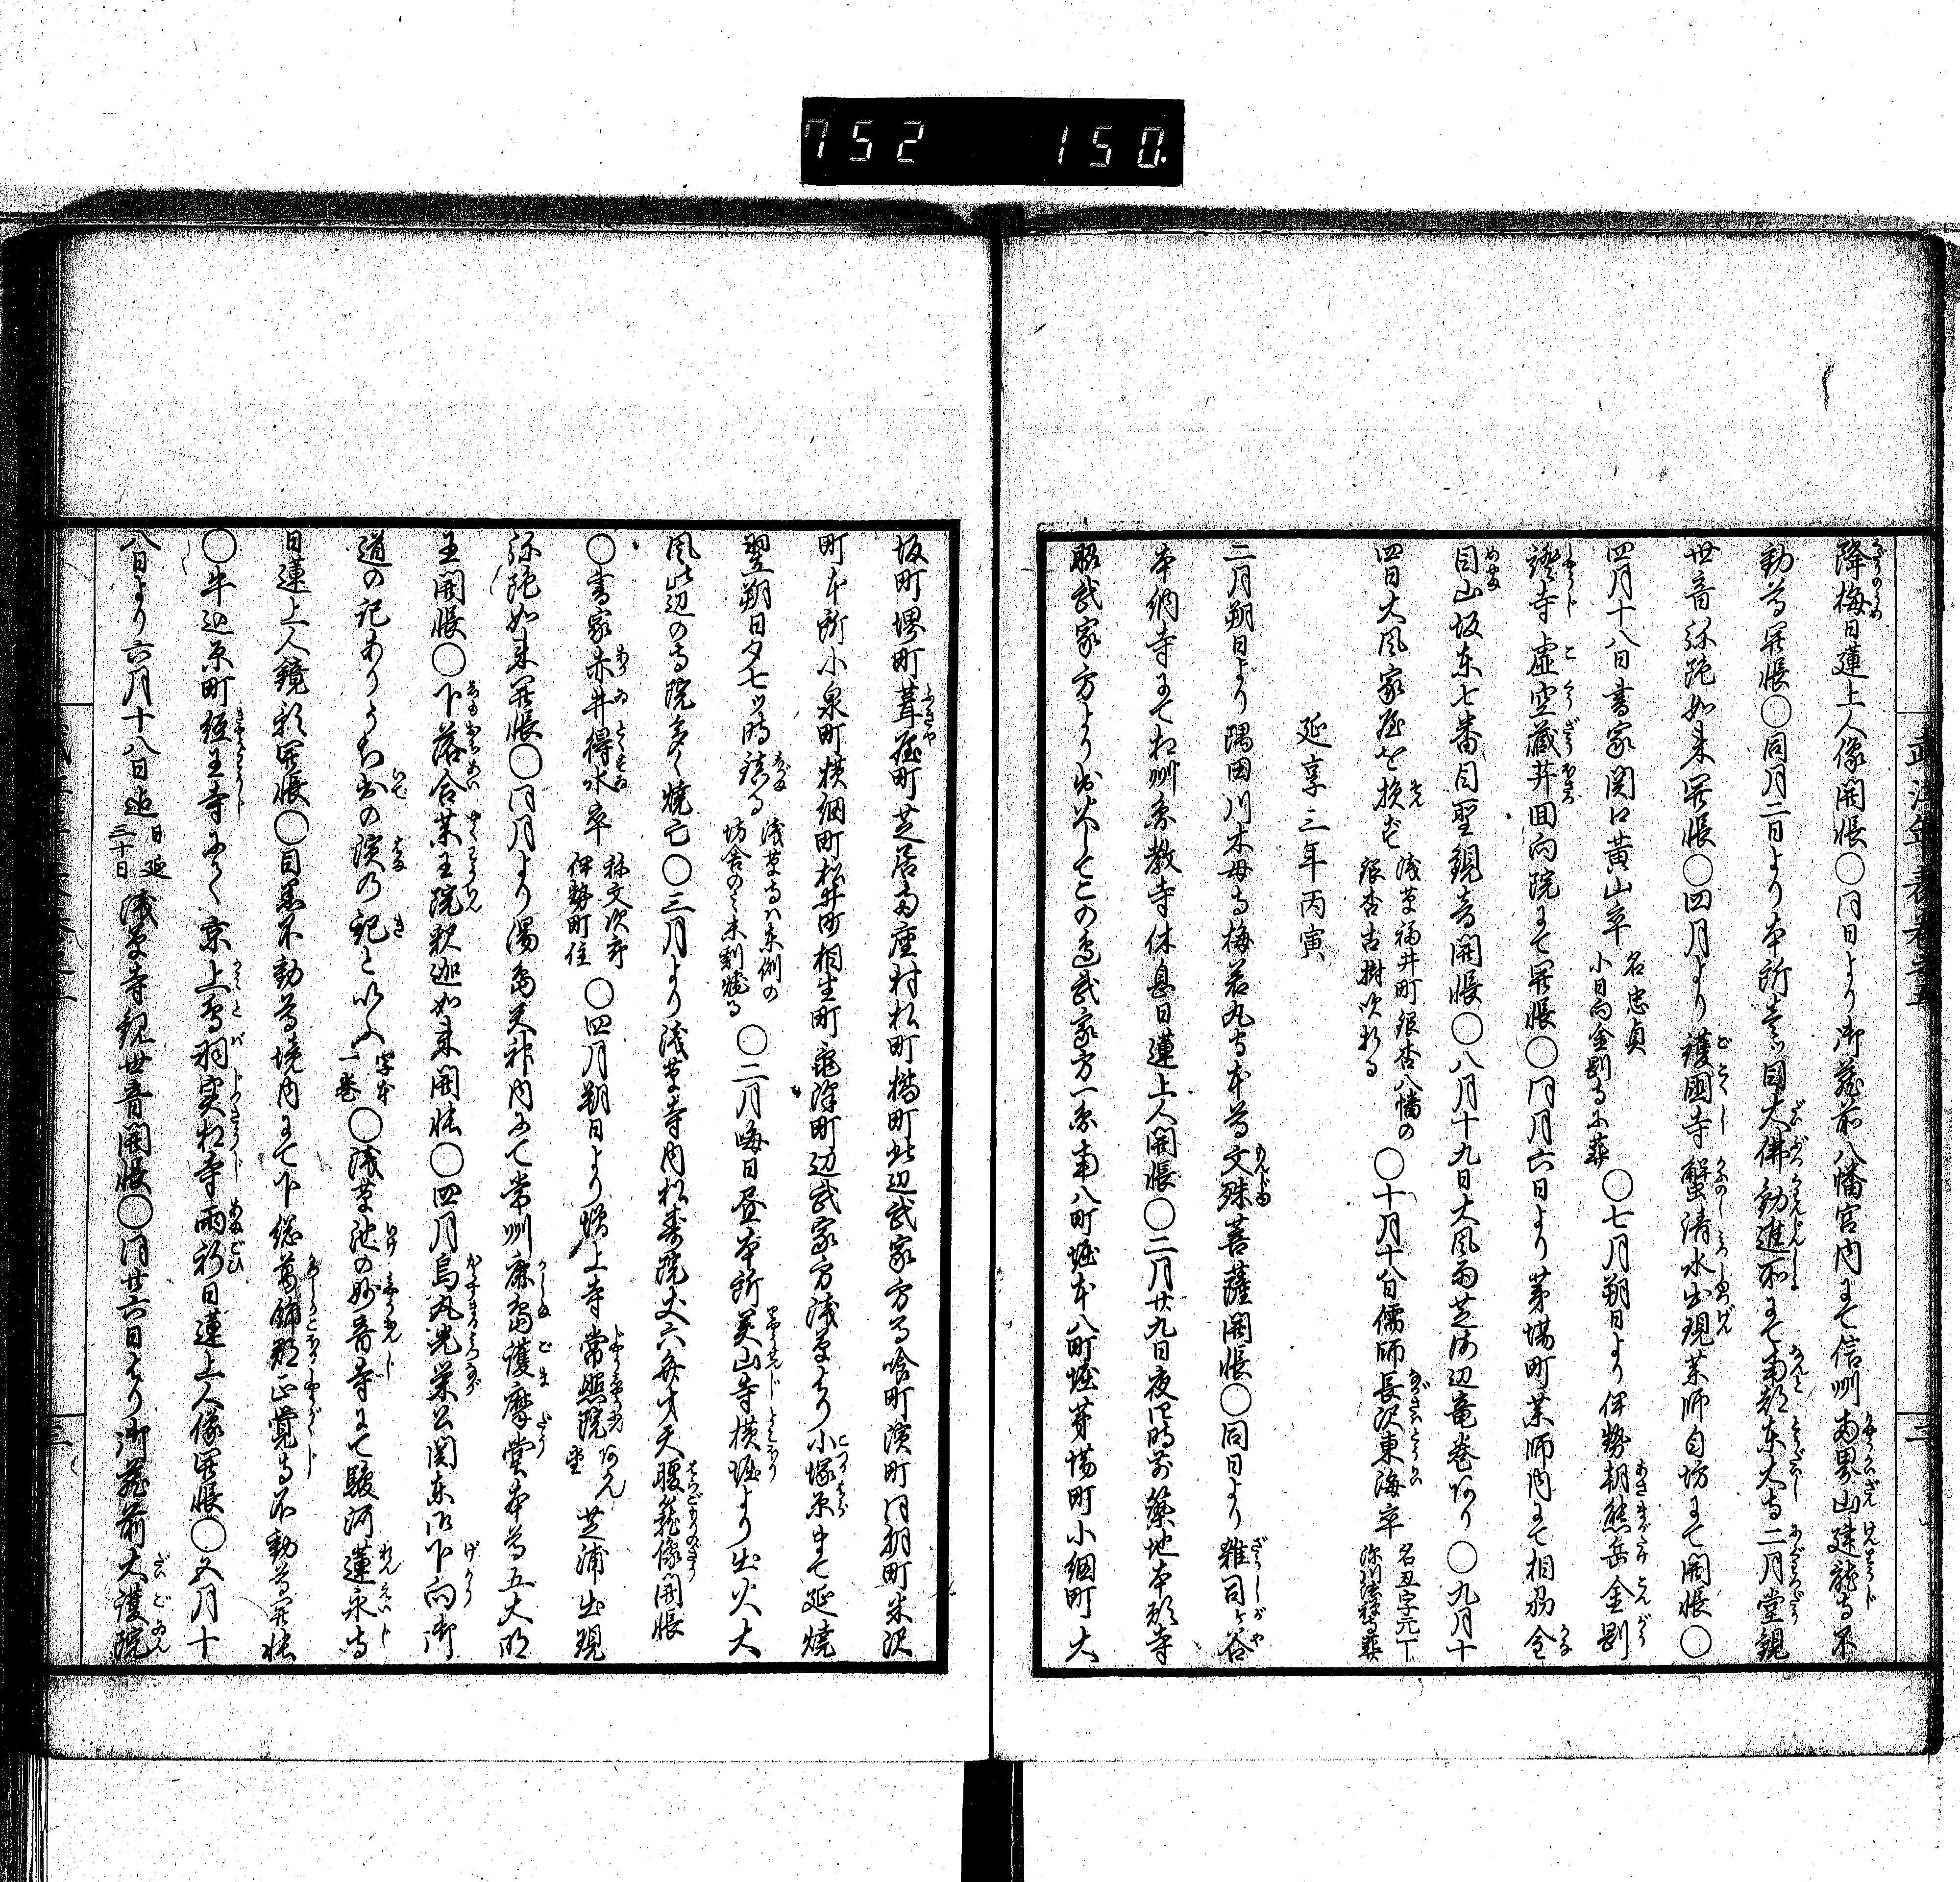 752 150.
降梅日蓮上人像開帳〇同日より御蔵前八幡宮内にて信州両界山建龍寺不
動尊開帳〇同月二日より本所壱ツ目大佛勧進所にて南都東大寺二月堂観
世音弥陀如来開帳〇四月より護国寺蟹清水出現薬師自坊にて開帳〇
四月十八日書家関口黄山卒 名忠貞 小日向金剛寺に葬 〇七月朔日より伊勢朝熊岳金剛
證寺虚空蔵井回向院にて開帳〇同月六日より茅場町薬師内にて相州金
目山坂東七番目聖観音開帳〇八月十九日大風雨芝海辺竜巻あり〇九月十
四日大風家屋を損ず 浅草福井町銀杏八幡の 銀杏古樹吹折る 〇十月十八日儒師長沢東海卒 名丑字元丁
延享三年丙寅
二月朔日より隅田川木母寺梅若丸寺本尊文殊菩薩開帳〇同日より雑司ヶ谷
本納寺にて相州宗教寺休息日蓮上人開帳〇二月廿九日夜四時前築地本願寺
脇武家方より出火してこの辺武家方一条南八町堀本八町堀茅場町小網町大
坂町堺町葺屋町芝居両座村松町橘町此辺武家方馬喰町濱町同朋町米沢
町本所小泉町横網町松井町相生町亀澤町辺武家方浅草より小塚原まで延焼
翌朔日夕七ツ時鎮る 浅草寺は末側の 坊舎のミ未刻焼る 〇二月晦日昼本所 山寺横堀より出火大
風此辺の寺院多く焼亡〇三月より浅草寺内松寿院丈六弁才天腹籠像開帳
〇書家赤井得水卒 称文次郎 伊勢町住 〇四月朔日より増上寺常照院 芝浦出現
弥陀如来開帳〇同月より湯島天神内にて常州鹿島護摩堂本尊五大明
王開帳〇下落合薬王院釈迦如来開帳〇四月烏丸光栄公関東御下向御
道の記ありうち出の濱の記といふ 写本 一巻 〇浅草池の妙音寺にて駿河蓮永寺
日蓮上人鏡影開帳〇目黒不動尊境内にて下総葛飾郡正覚寺不動尊開帳
〇牛込原町経王寺にて京上鳥羽実相寺雨祈日蓮上人像開帳〇五月十
八日より六月十八日迄 日延 三十日 浅草寺観世音開帳〇同廿六日より御蔵前大護院